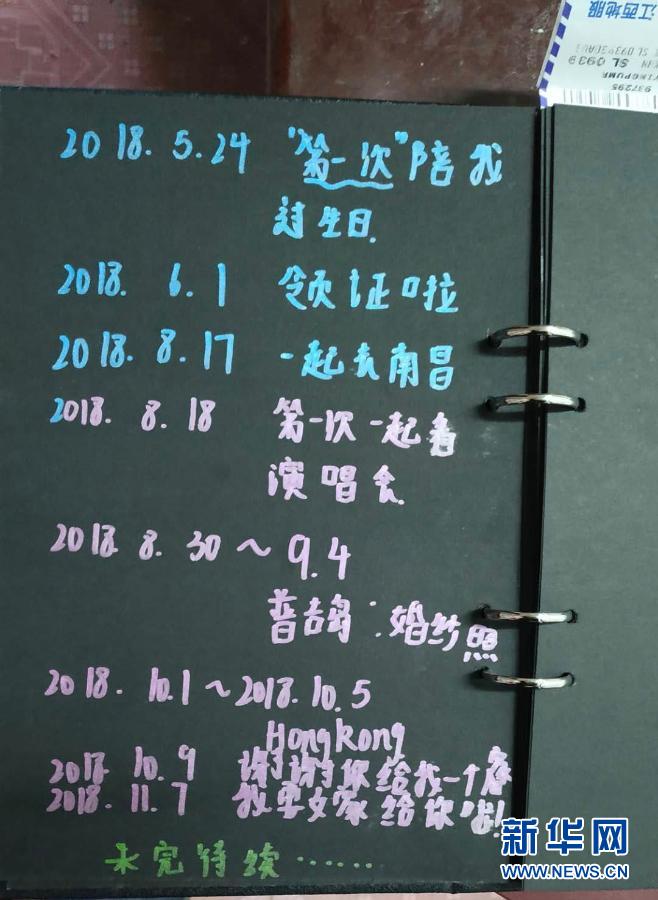 江西地服
SL 0939
937295
2018.5.24 "第一次"陪我
过生日.
2018. 6.1 领证啦
2018.8.17 一起去南昌
2018. 8.18 第一次一起看
演唱会
2018. 8. 30 ~ 9.4
普吉岛:婚纱照
2018. 10.1 ~ 2018.10.5
HongKong
2018. 10. 9 谢谢你给我一个家
2018. 11.7 我
给你啦!
未完待续……
新华网
WWW.NEWS.CN